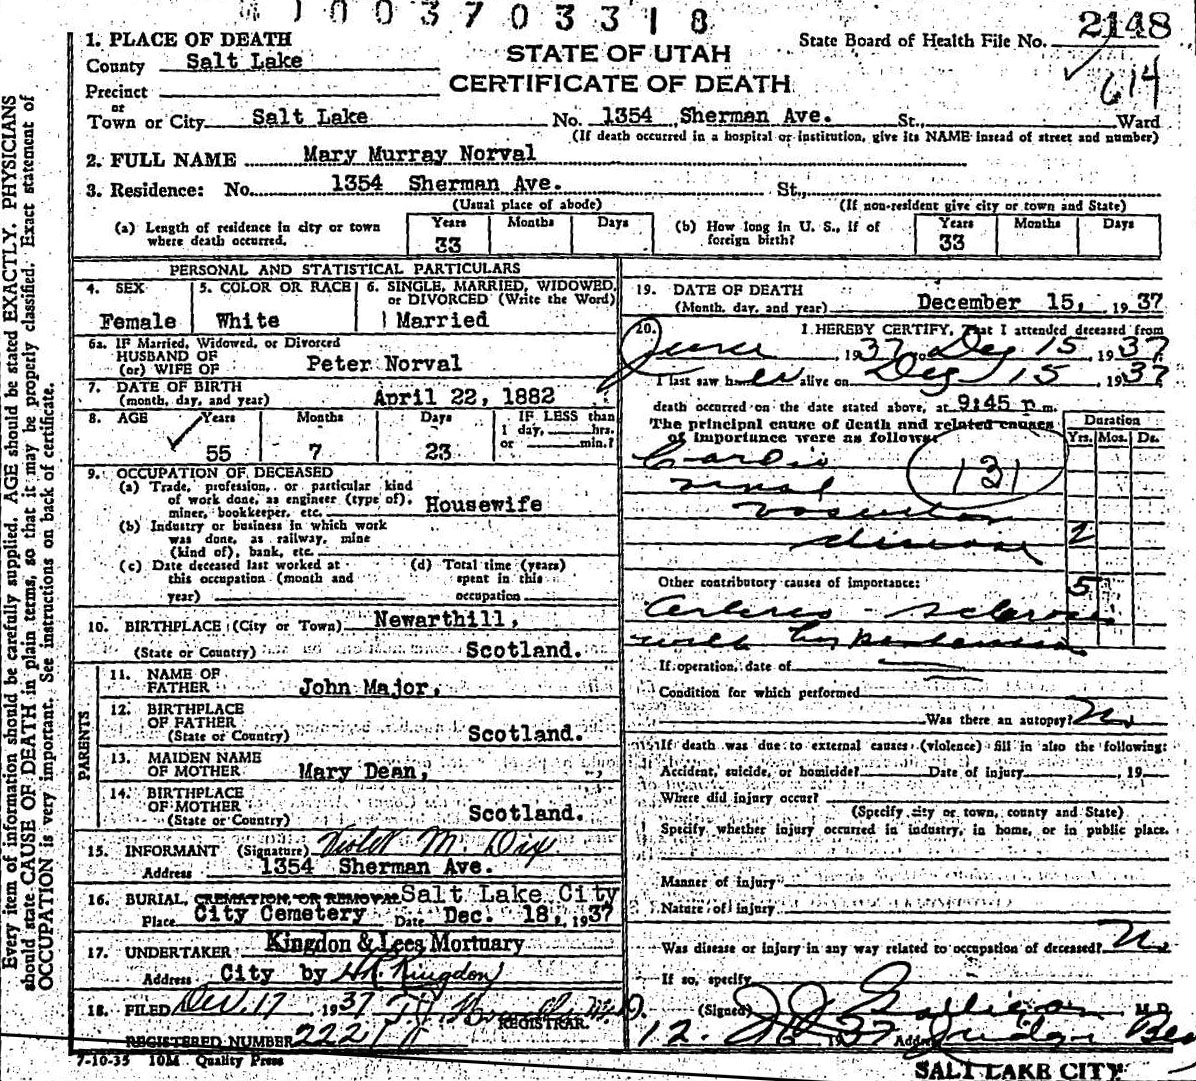 1003703318
2148
614
1. PLACE OF DEATH
County Salt Lake
Precinct
or
Town or City Salt Lake No. 1354 Sherman Ave. St., Ward
(If death occurred in a hospital or institution, give its NAME instead of street and number)
STATE OF UTAH
CERTIFICATE OF DEATH
State Board of Health File No.
2. FULL NAME Mary Murray Norval
3. Residence: No. 1354 Sherman Ave. St.,
(Usual place of abode) (If non-resident give city or town and State)
(a) Length of residence in city or town
where death occurred.
Years Months Days
33
(b) How long in U. S., if of
foreign birth?
Years Months Days
33
PERSONAL AND STATISTICAL PARTICULARS
4. SEX
Female
5. COLOR OR RACE
White
6. SINGLE, MARRIED, WIDOWED,
or DIVORCED (Write the Word)
Married
6a. IF Married, Widowed, or Divorced
HUSBAND OF
(or) WIFE OF Peter Norval
7. DATE OF BIRTH
(month, day, and year) April 22, 1882
8. AGE Years Months Days
55 7 23
IF LESS than
1 day, hrs.
or min.?
9. OCCUPATION OF DECEASED
(a) Trade, profession, or particular kind
of work done, as engineer (type of),
miner, bookkeeper, etc. Housewife
(b) Industry or business in which work
was done, as railway, mine
(kind of), bank, etc.
(c) Date deceased last worked at
this occupation (month and
year)
(d) Total time (years)
spent in this
occupation
10. BIRTHPLACE (City or Town) Newarthill,
(State or Country) Scotland.
PARENTS
11. NAME OF
FATHER John Major,
12. BIRTHPLACE
OF FATHER
(State or Country) Scotland.
13. MAIDEN NAME
OF MOTHER Mary Dean,
14. BIRTHPLACE
OF MOTHER
(State or Country) Scotland.
15. INFORMANT (Signature) Violet M. Dix
Address 1354 Sherman Ave.
16. BURIAL, CREMATION, OR REMOVAL Salt Lake City
Place City Cemetery Date Dec. 18, 1937
17. UNDERTAKER Kingdon & Lees Mortuary
Address City by Kingdon
18. FILED Dec. 17 1937
REGISTRAR.
REGISTERED NUMBER 2221
7-10-35 10M Quality Press
19. DATE OF DEATH
(Month, day, and year) December 15, 1937
20. I HEREBY CERTIFY, That I attended deceased from
June 1937 to Dec 15, 1937
I last saw her alive on Dec 15, 1937
death occurred on the date stated above, at 9:45 p m.
The principal cause of death and related causes
of importance were as follows:
Duration
Yrs. Mos. Ds.
Cardio 131
renal
vascular
disease 2
Other contributory causes of importance: 5
Arterio-sclerosis
with hypertension
If operation, date of
Condition for which performed
Was there an autopsy? No
If death was due to external causes (violence) fill in also the following:
Accident, suicide, or homicide? Date of injury , 19
Where did injury occur?
(Specify city or town, county and State)
Specify whether injury occurred in industry, in home, or in public place.
Manner of injury
Nature of injury
Was disease or injury in any way related to occupation of deceased? No
If so, specify
(Signed) J J Galligan M.D.
12. 16 1937 Address Judge Bldg
SALT LAKE CITY
Every item of information should be carefully supplied. AGE should be stated EXACTLY. PHYSICIANS
should state CAUSE OF DEATH in plain terms, so that it may be properly classified. Exact statement of
OCCUPATION is very important. See instructions on back of certificate.